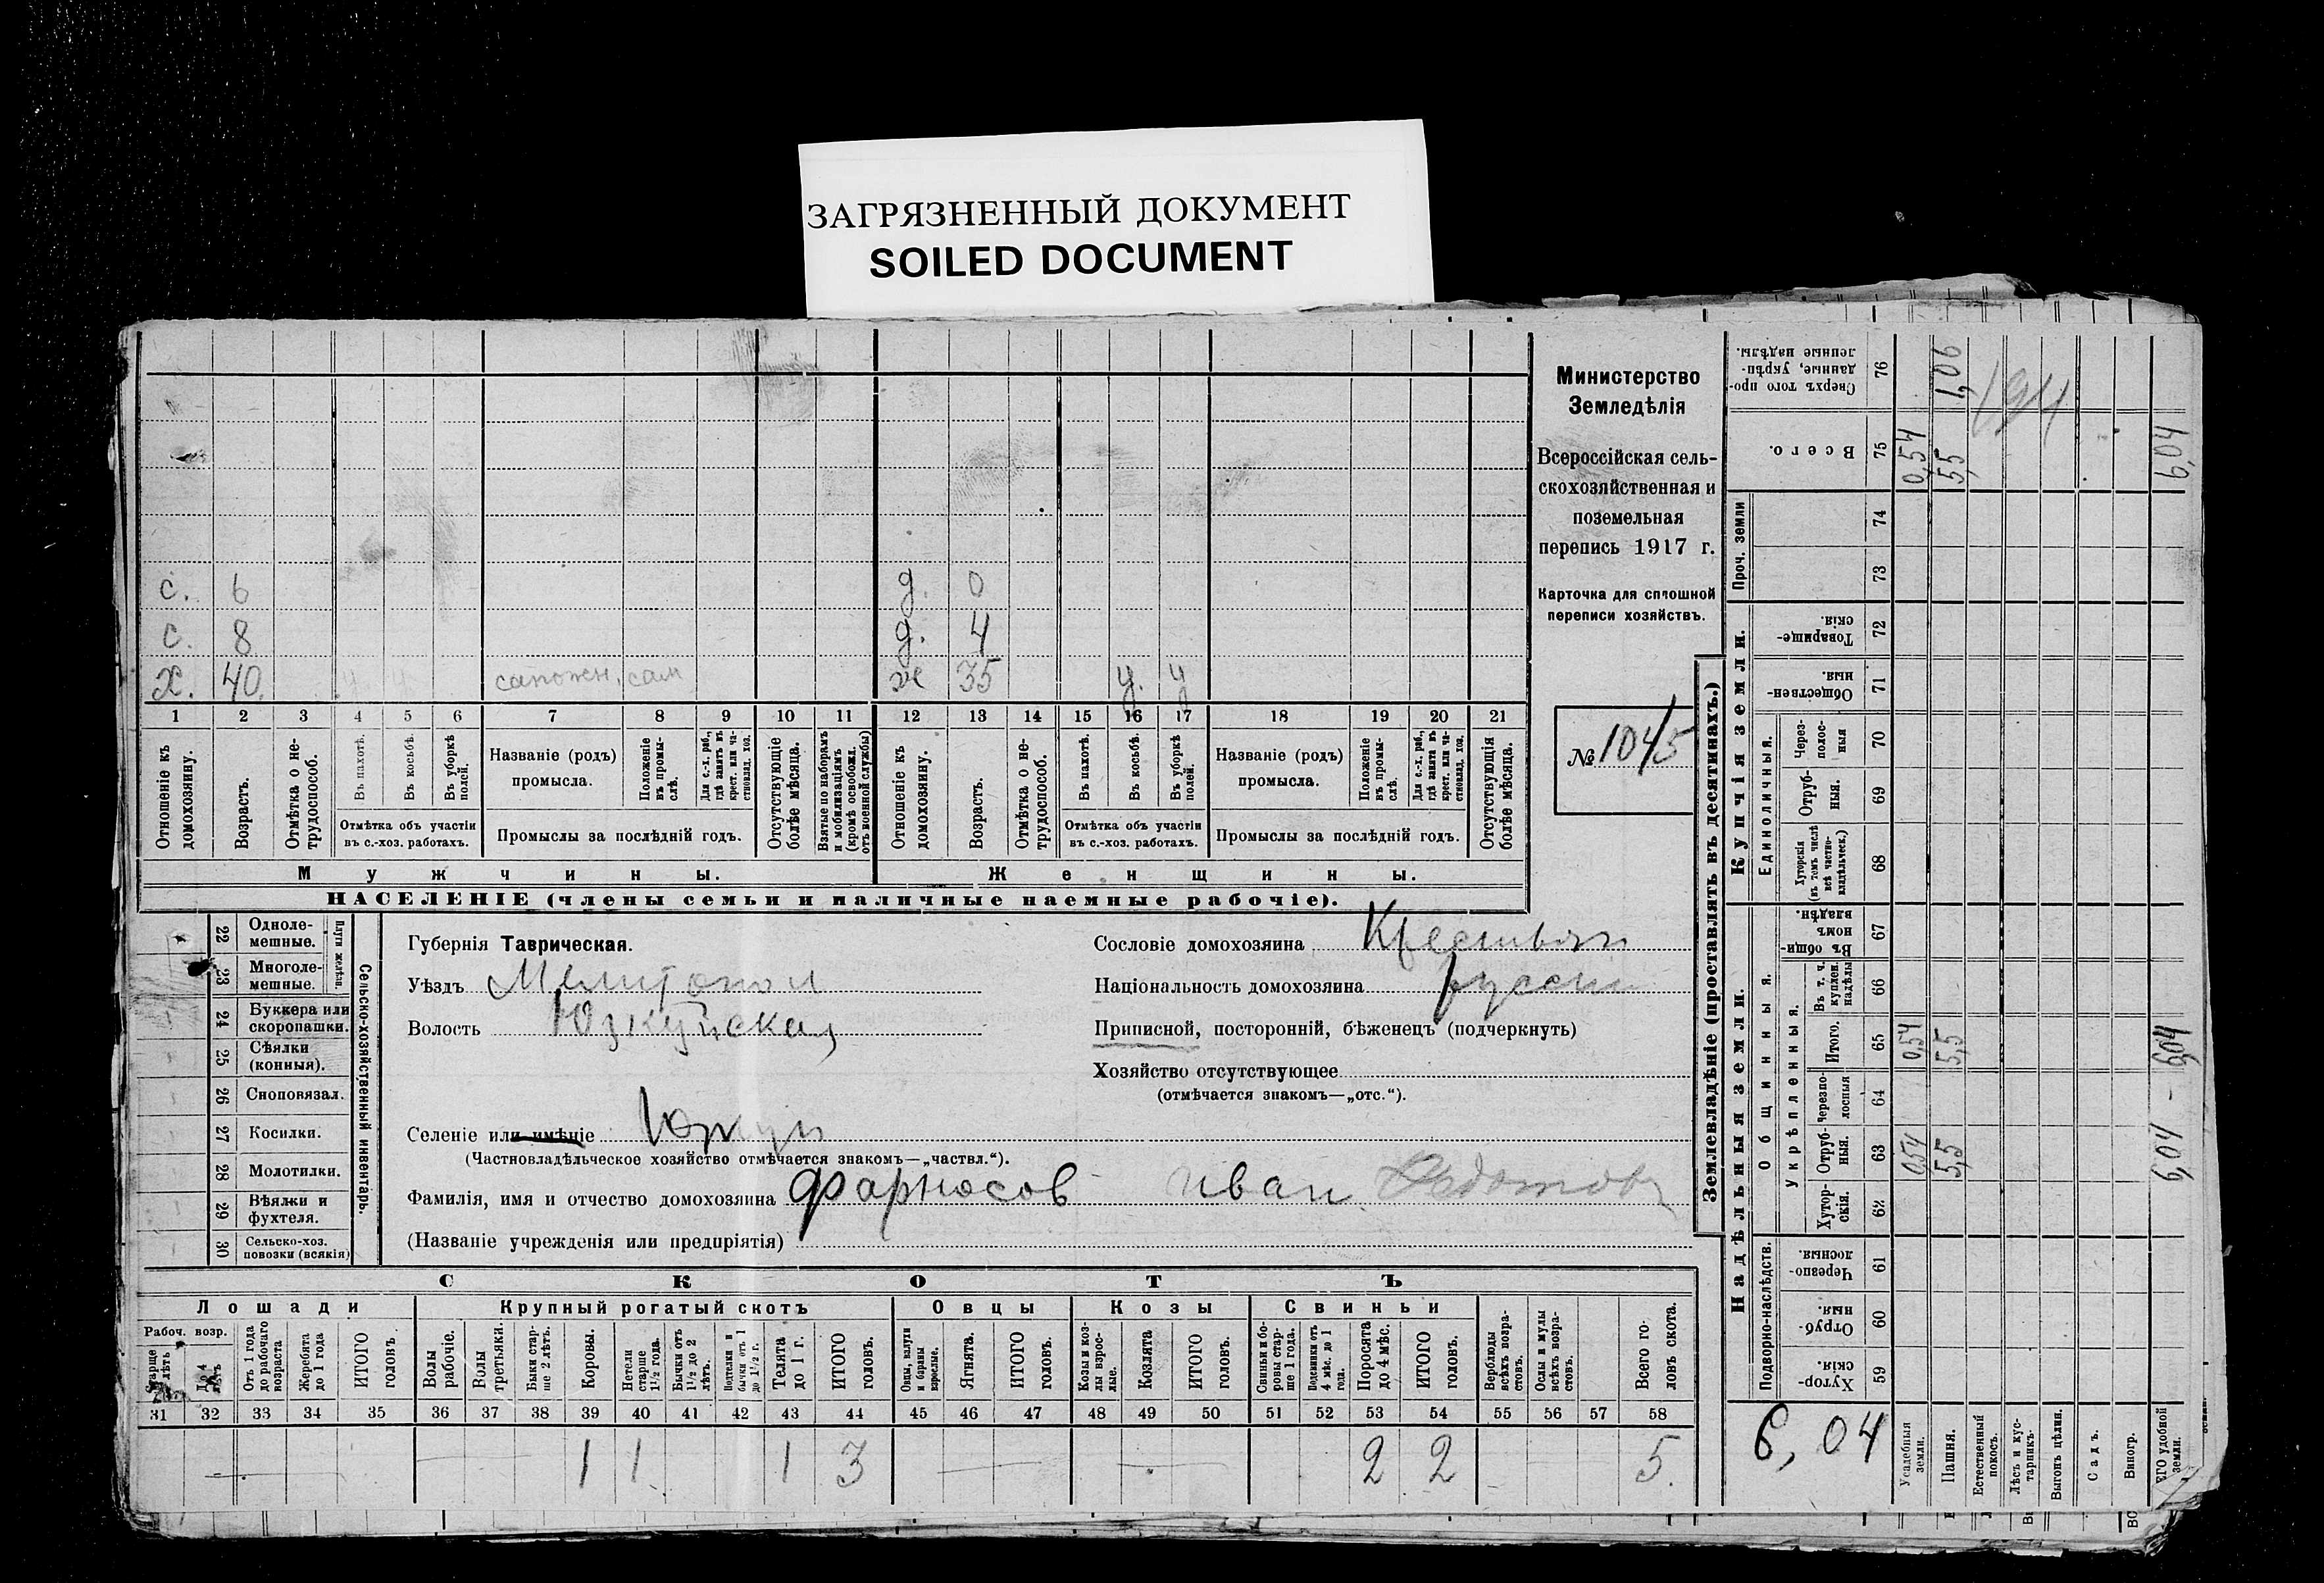 ЗАГРЯЗНЕННЫЙ ДОКУМЕНТ
SOILED DOCUMENT
с. 6 д. 0
с. 8 д. 4
х. 40. сапожн. сам же 35 у. у
1 2 3 4 5 6 7 8 9 10 11 12 13 14 15 16 17 18 19 20 21
Отношеніе къ домохозяину.
Возрастъ.
Отмѣтка о не-трудоспособ.
Въ пахотѣ.
Въ косьбѣ.
Въ уборкѣ полей.
Названіе (родъ) промысла.
Положеніе въ промы-слѣ.
Для с.-х. раб., гдѣ занятъ въ крест. или ча-стновлад. хоз.
Отсутствующіе болѣе мѣсяца.
Взятые по наборамъ и мобилизаціямъ (кромѣ освобожд. отъ военной службы)
Отношеніе къ домохозяину.
Возрастъ.
Отмѣтка о не-трудоспособ.
Въ пахотѣ.
Въ косьбѣ.
Въ уборкѣ полей.
Названіе (родъ) промысла.
Положеніе въ промы-слѣ.
Для с.-х. раб., гдѣ занятъ въ крест. или ча-стновлад. хоз.
Отсутствующія болѣе мѣсяца.
Отмѣтка объ участіи въ с.-хоз. работахъ.
Промыслы за послѣдній годъ.
Отмѣтка объ участіи въ с.-хоз. работахъ.
Промыслы за послѣдній годъ.
Мужчины. Женщины.
НАСЕЛЕНІЕ (члены семьи и наличные наемные рабочіе).
Министерство
Земледѣлія
Всероссійская сель-
скохозяйственная и
поземельная
перепись 1917 г.
Карточка для сплошной
переписи хозяйствъ.
№ 1045
22 Одноле-мешные.
23 Многоле-мешные.
Плуги желѣзн.
24 Буккера или скоропашки.
25 Сѣялки (конныя).
26 Сноповязал.
27 Косилки.
28 Молотилки.
29 Вѣялки и фухтеля.
30 Сельско-хоз. повозки (всякія)
Сельско-хозяйственный инвентарь.
Губернія Таврическая.
Уѣздъ Мелитопол
Волость Юзкуйская
Селеніе или имѣніе
(Частновладѣльческое хозяйство отмѣчается знакомъ—„частвл.“).
Фамилія, имя и отчество домохозяина Фарносов Иван Федотовъ
(Названіе учрежденія или предпріятія)
Сословіе домохозяина Крестьян
Національность домохозяина русский
Приписной, посторонній, бѣженецъ (подчеркнуть)
Хозяйство отсутствующее
(отмѣчается знакомъ—„отс.“).
СКОТЪ
Лошади Крупный рогатый скотъ Овцы Козы Свиньи
Рабоч. возр.
Старше лѣтъ
До 4 лѣтъ
Отъ 1 года до рабочаго возраста
Жеребята до 1 года
ИТОГО головъ.
Волы рабочіе.
Волы третьяки.
Быки стар-ше 2 лѣтъ.
Коровы.
Нетели старше 1½ года.
Бычки отъ 1½ до 2 лѣтъ.
Подтелки и бычки отъ 1 до 1½ г.
Телята до 1 г.
ИТОГО головъ.
Овцы, валухи и бараны взрослые.
Ягнята.
ИТОГО головъ.
Козы и коз-лы взрос-лые.
Козлята
ИТОГО головъ.
Свиньи и бо-ровы стар-ше 1 года.
Подсвинки отъ 4 мѣс. до 1 года.
Поросята до 4 мѣс.
ИТОГО головъ.
Верблюды всѣхъ возра-стовъ.
Ослы и мулы всѣхъ возра-стовъ.
Всего го-ловъ скота.
31 32 33 34 35 36 37 38 39 40 41 42 43 44 45 46 47 48 49 50 51 52 53 54 55 56 57 58
1 1 1 3 2 2 5.
Землевладѣніе (проставлять въ десятинахъ.)
Надѣльныя земли.
Купчія земли.
Проч. земли
Подворно-наслѣдств.
Общинныя.
Укрѣпленныя.
Единоличныя.
76 Сверхъ того про-данные, укрѣп-ленные надѣлы. 1,06
75 Всего. 0,54 5,5 6,04
74
73
72 Товарище-скія.
71 Обществен-ныя.
70 Через-полос-ныя
69 Отруб-ныя.
68 Хуторскія (въ томъ числѣ всѣ частно-владѣльческ.)
67 Въ общин-номъ владѣн.
66 Въ т. ч. куплен. надѣлы
65 Итого. 0,54 5,5 6,04
64 Черезпо-лосныя
63 Отруб-ныя. 0,54 5,5 6,04
62 Хутор-скія.
61 Черезпо-лосныя.
60 Отруб-ныя.
59 Хутор-скія.
6,04
Усадебныя земли.
Пашня.
Естественный покосъ.
Лѣсъ и кус-тарникъ.
Выгонъ цѣлин.
Садъ.
Виногр.
ЕГО удобной земли.